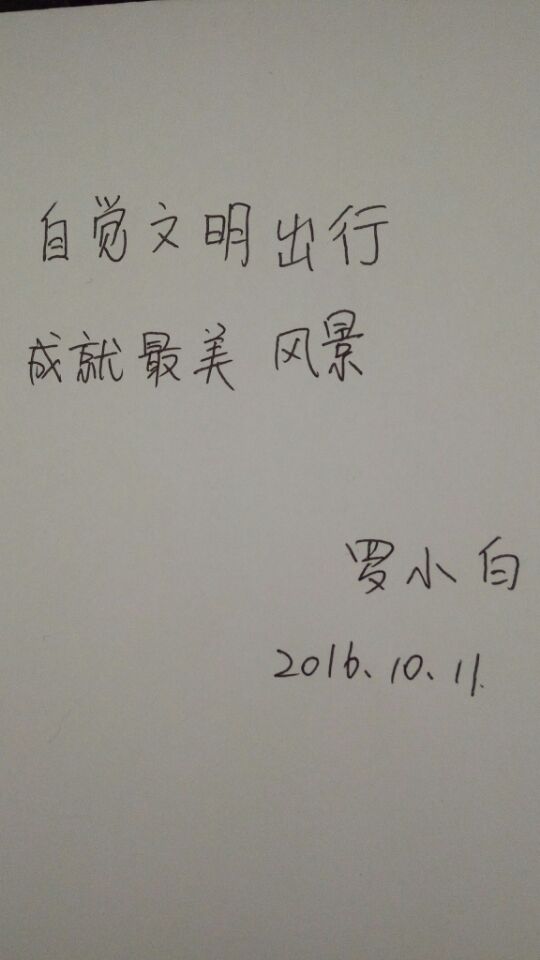 自觉文明出行
成就最美风景
罗小白
2016.10.11.